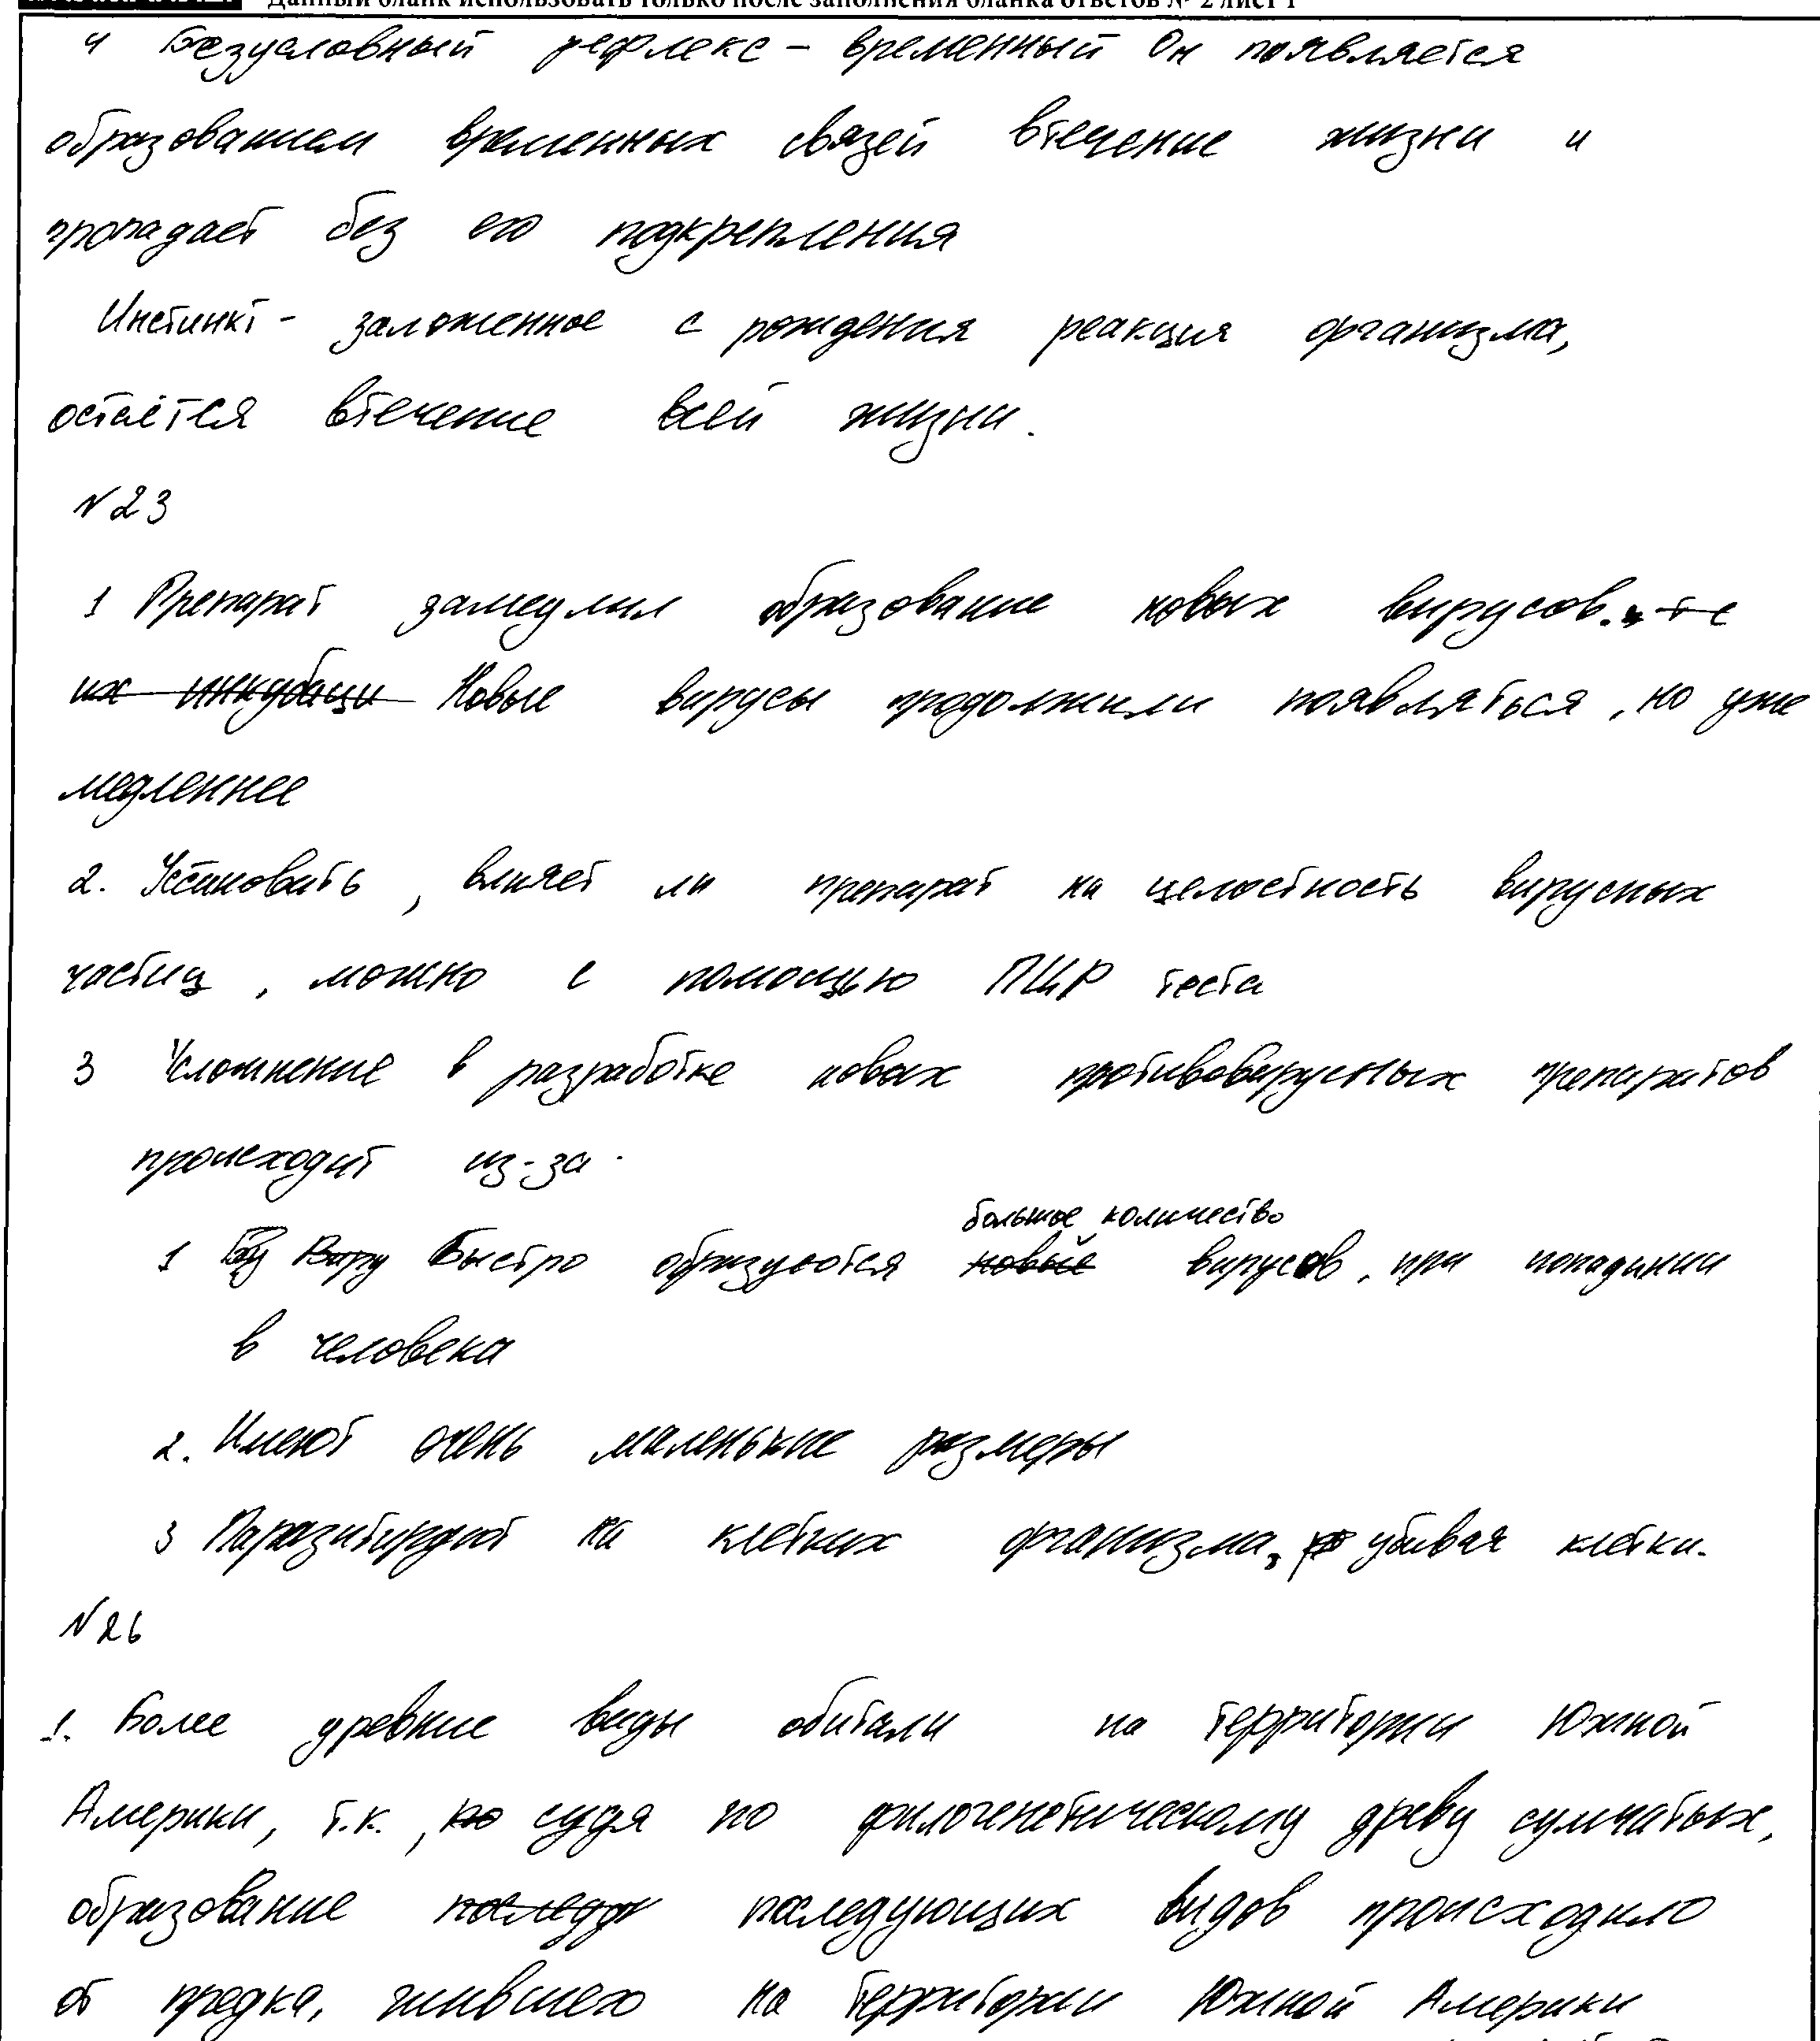 Данный бланк использовать только после заполнения бланка ответов № 2 лист 1
4 Безусловный рефлекс - временный Он появляется
образованием временных связей втечение жизни и
пропадает без его подкрепления
Инстинкт - заложенное с рождения реакция организма,
остаётся втечение всей жизни.
№23
1 Препарат замедлил образование новых вирусов.
Новые вирусы продолжили появляться, но уже
медленнее
2. Установить, влияет ли препарат на целостность вирусных
частиц, можно с помощью ПЦР теста
3 Усложнение в разработке новых противовирусных препаратов
происходит из-за
большое количество
1 Быстро образуются новые вирусов, при попадании
в человека
2. Имеют очень маленькие размеры
3 Паразитируют на клетках организма, убивая клетки.
№26
1. Более древние виды обитали на территории Южной
Америки, т.к., судя по филогенетическому древу сумчатых,
образование последующих видов происходило
от предка, жившего на территории Южной Америки